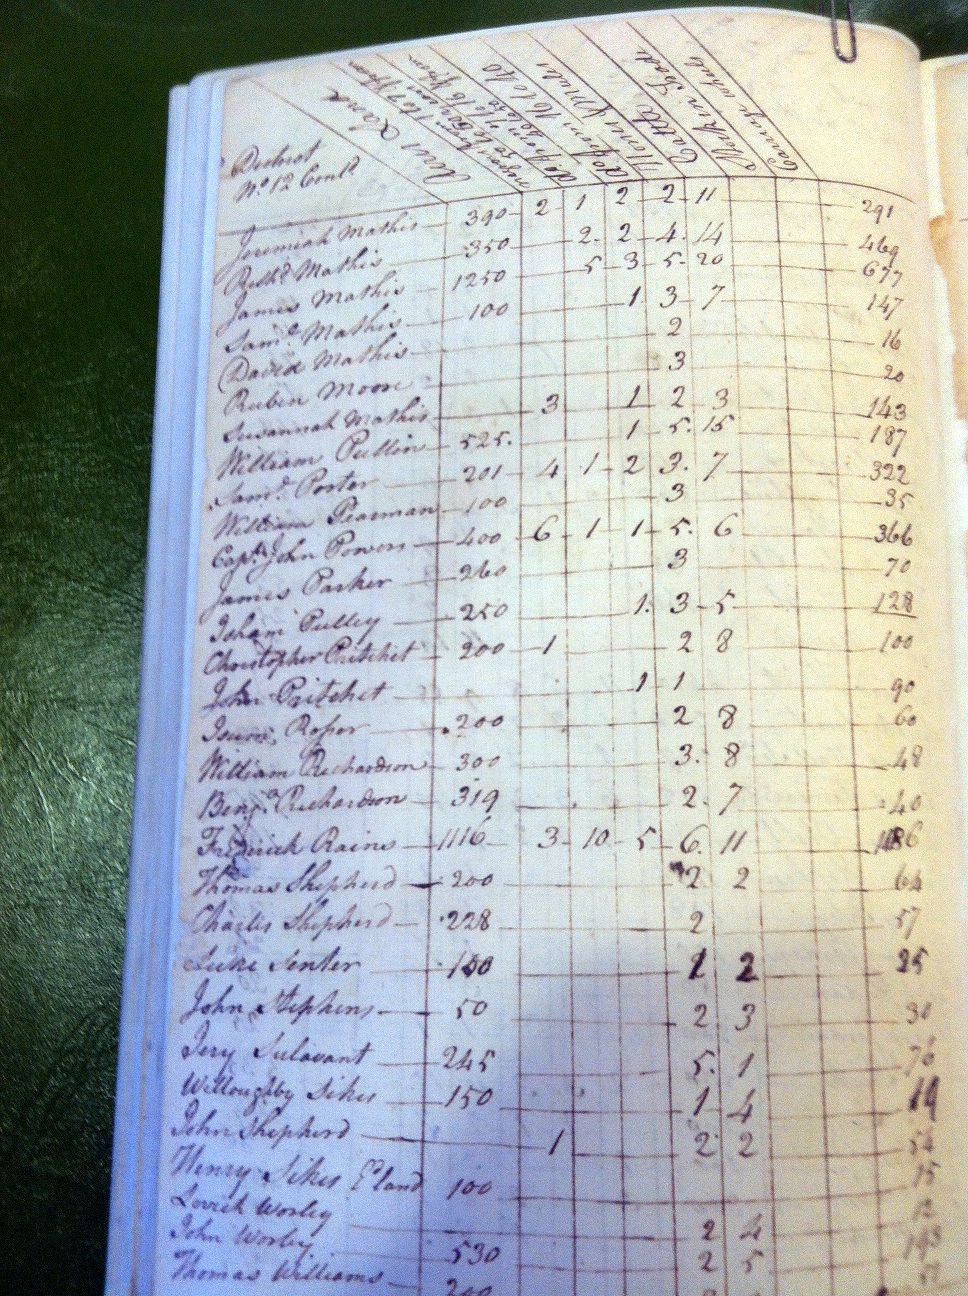 District
No. 12 Contd
Acres Land
Horses & Mules
Cattle
Work in Road
Carriage wheels
Jeremiah Mathis 390 2 1 2 2 11 291
Richd Mathis 350 2 2 4 14 469
James Mathis 1250 5 3 5 20 677
Saml Mathis 100 1 3 7 147
David Mathis 2 16
Ruben Moore 3 20
Susannah Mathis 3 1 2 3 143
William Pullin 525 1 5 15 187
Saml Porter 201 4 1 2 3 7 322
William Pearman 100 3 35
Capt John Powers 400 6 1 1 5 6 366
James Parker 260 3 70
Isham Pulley 250 1 3 5 128
Christopher Pritchet 200 1 2 8 100
John Pritchet 1 1 90
Isum Roper 200 2 8 60
William Richardson 300 3 8 48
Benja Richardson 319 2 7 40
Frederick Rains 1116 3 10 5 6 11
Thomas Shepherd 200 2 2 64
Charles Shepherd 228 2 57
Luke Senter 100 1 2 25
John Stephens 50 2 3 30
Jery Sulavant 245 5 1 76
Willoughby Sikes 150 1 4 19
John Shepherd 1 2 2 54
Henry Sikes E land 100 15
Lovick Worley 2 4 12
John Worley 530 2 5 193
Thomas Williams 200